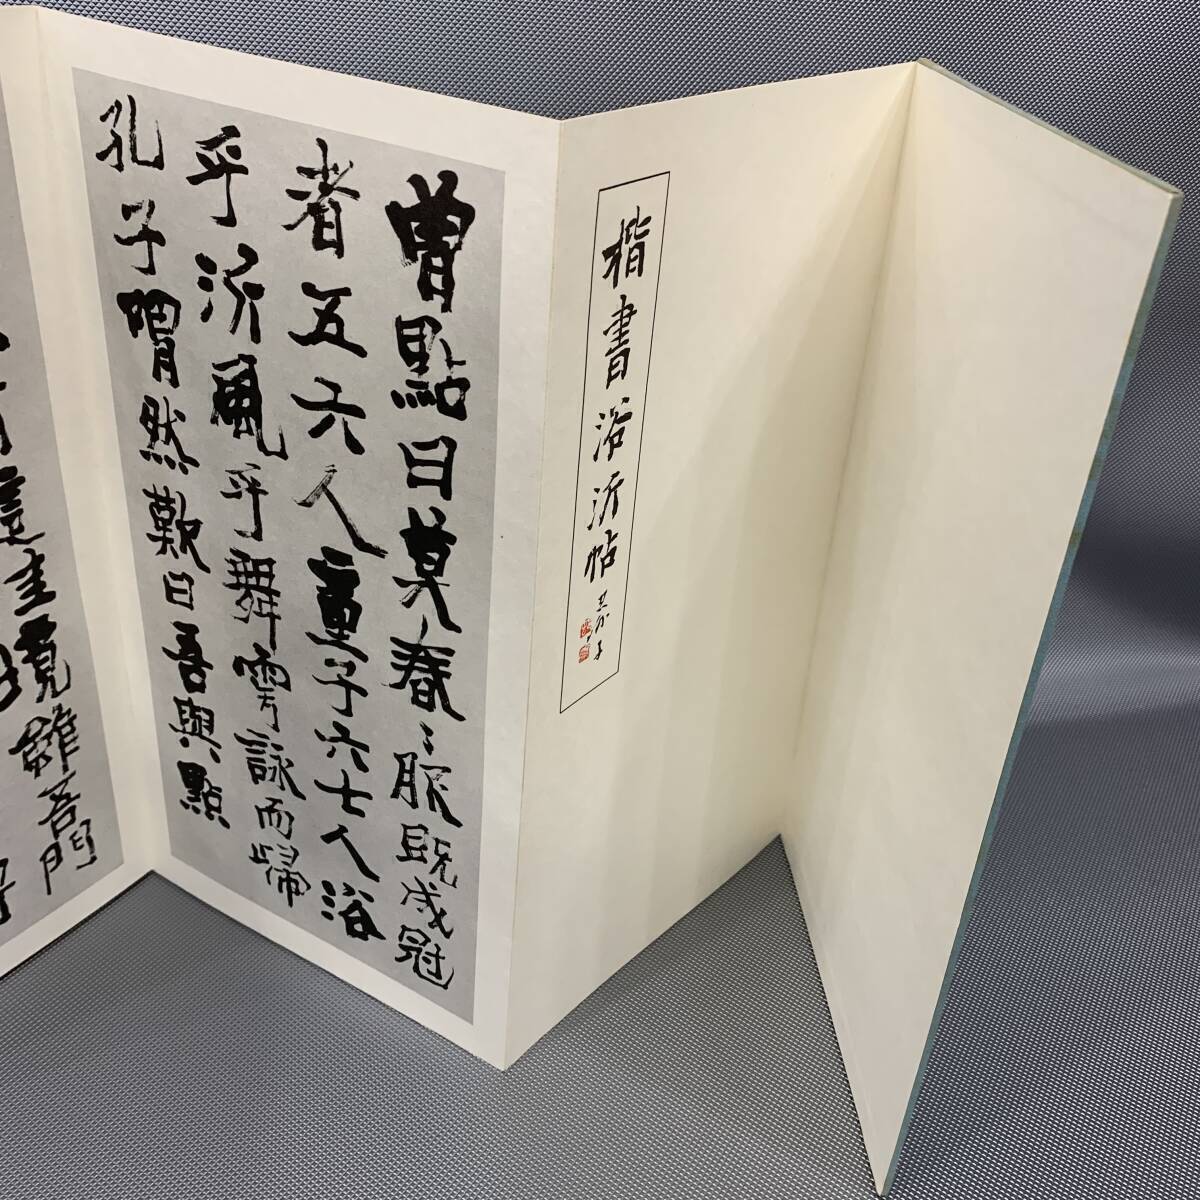 楷書浴沂帖
曽點曰莫春ミ服既成冠
者五六人童子六七人浴
乎沂風乎舞雩詠而歸
孔子喟然歎曰吾與點
竟雖吾門